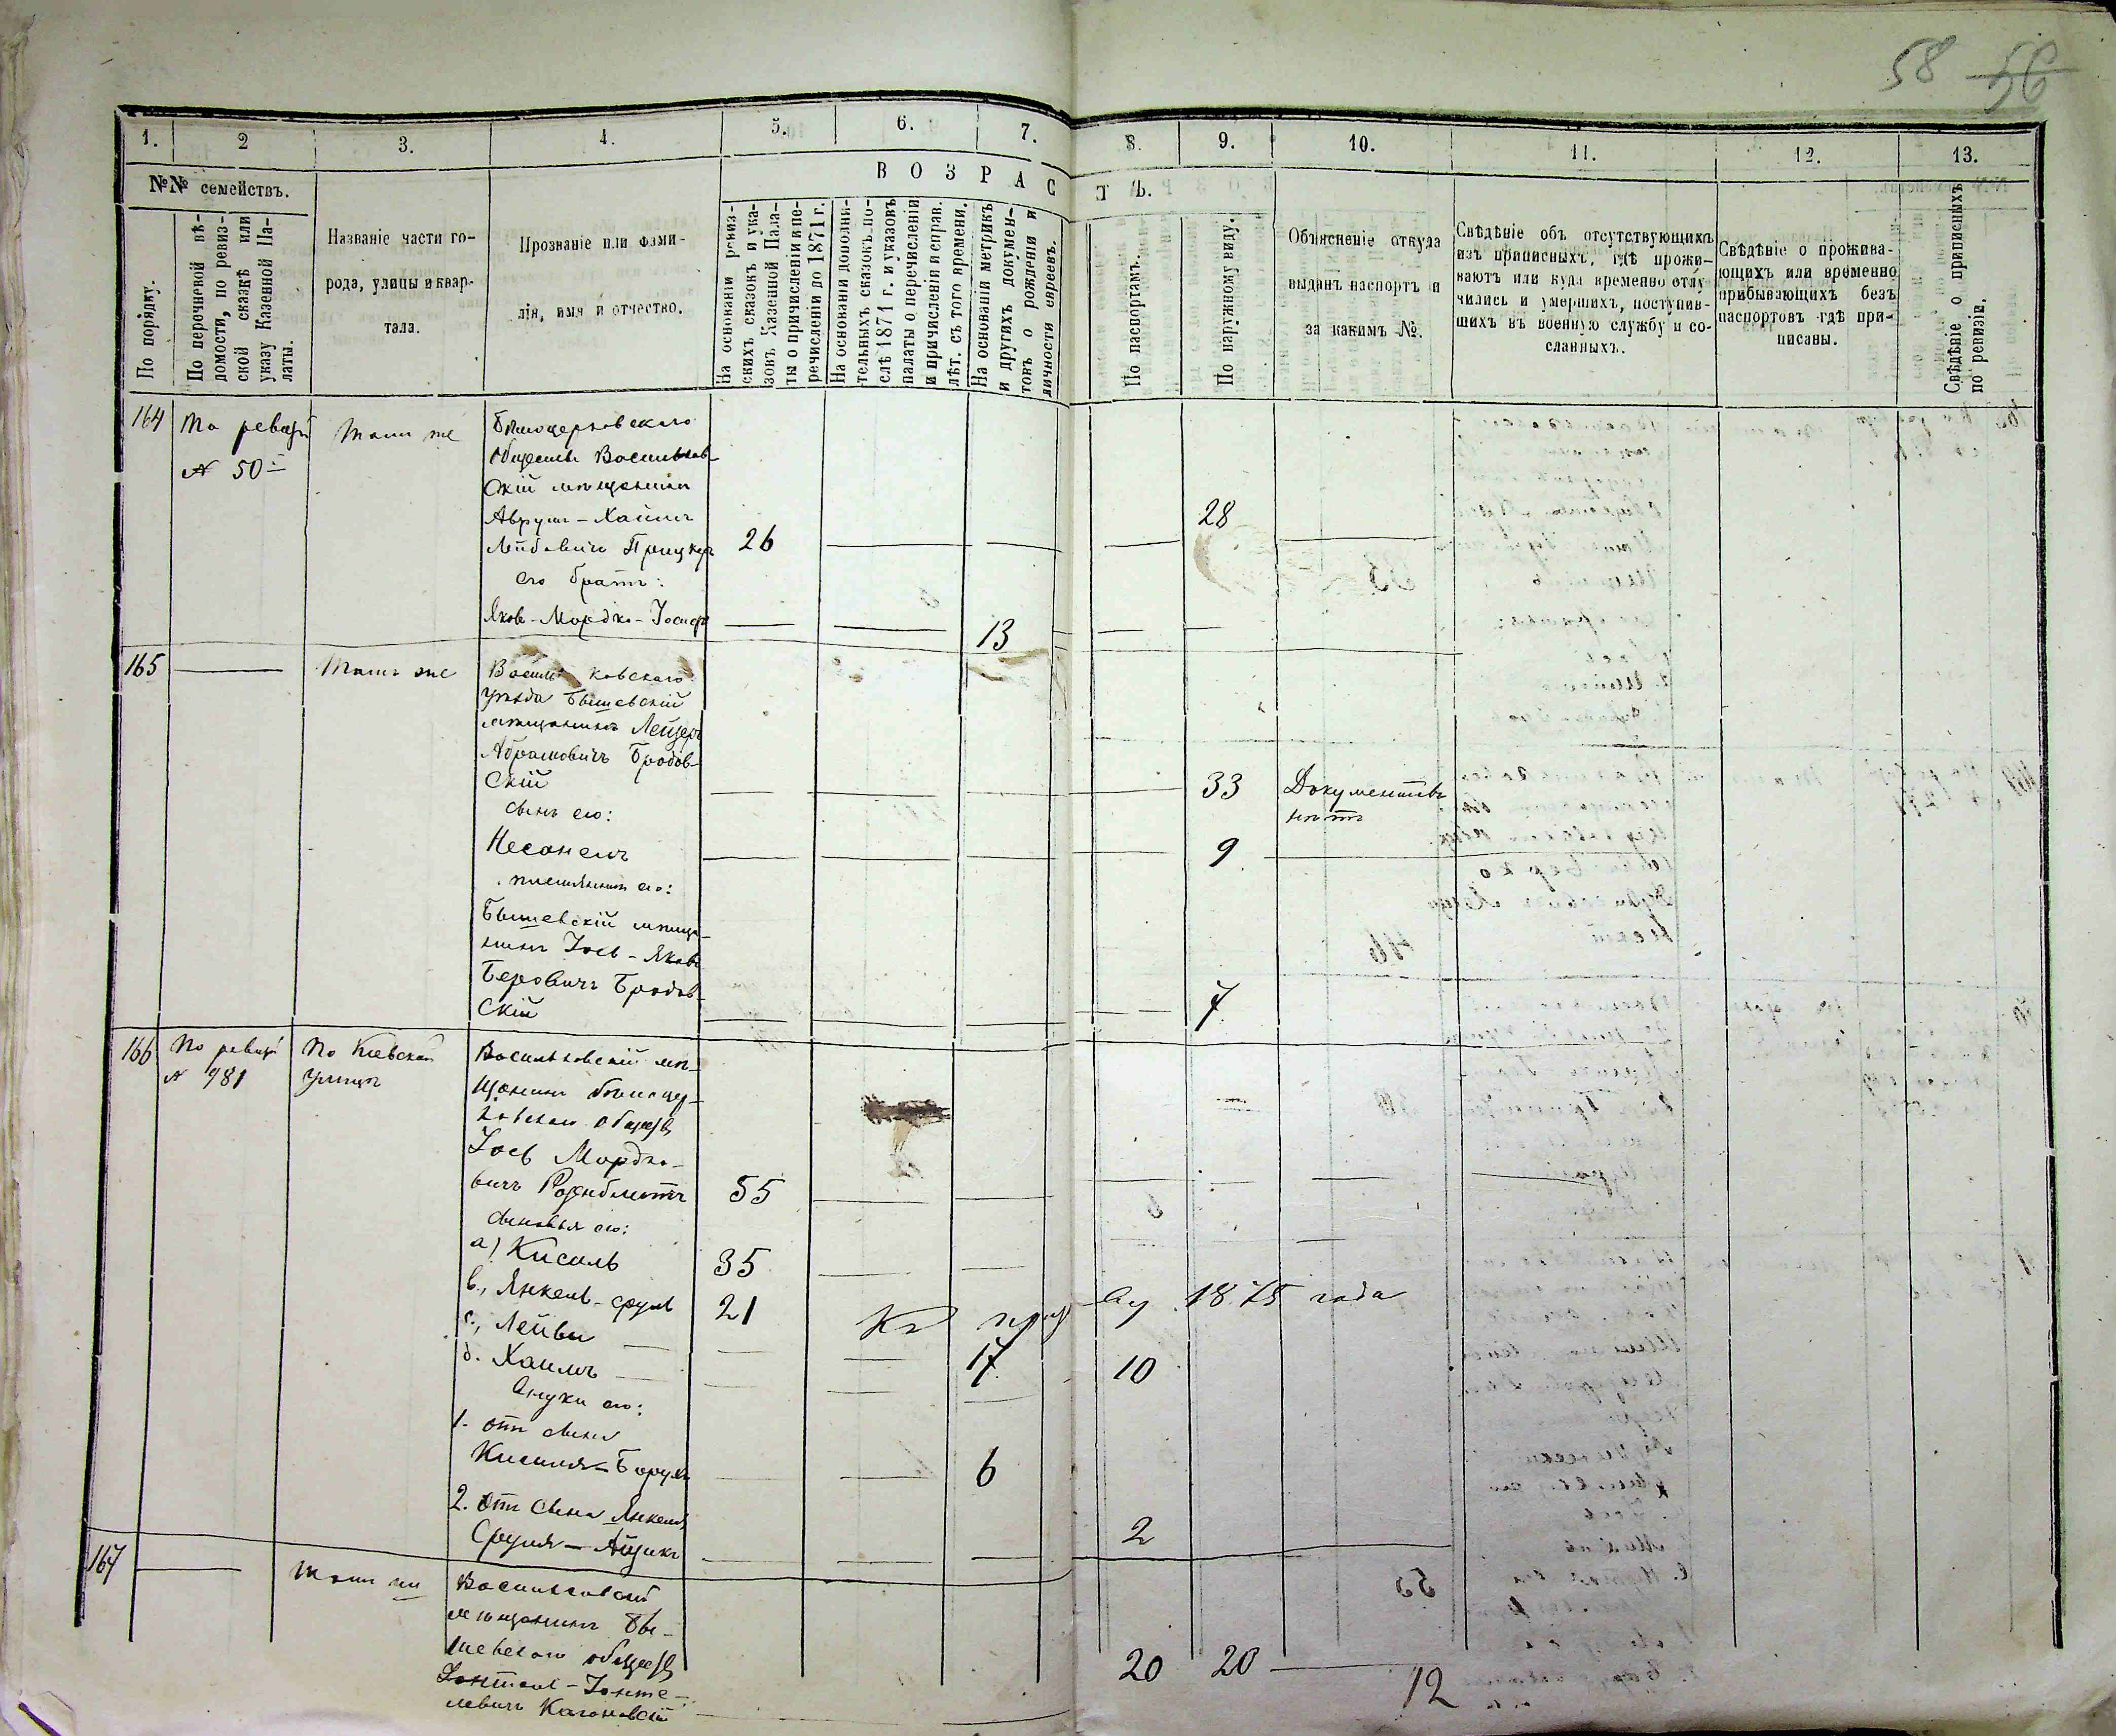 58 56
1. 2 3. 4. 5. 6. 7. 8. 9. 10. 11. 12. 13.
№№ семействъ.
ВОЗРАСТЪ.
По порядку.
По перечневой вѣ-
домости, по ревиз-
ской сказкѣ или
указу Казенной Па-
латы.
Названіе части го-
рода, улицы и квар-
тала.
Прозваніе или фами-
лія, имя и отчество.
На основаніи ревиз-
скихъ сказокъ и ука-
зовъ Казенной Пала-
ты о причисленіи и пе-
речисленіи до 1871 г.
На основаніи дополни-
тельныхъ сказокъ по-
слѣ 1871 г. и указовъ
палаты о перечисленіи
и причисленіи и справ.
лѣт. съ того времени.
На основаніи метрикъ
и другихъ докумен-
товъ о рожденіи и
личности евреевъ.
По паспортамъ.
По наружному виду.
Объясненіе откуда
выданъ паспортъ и
за какимъ №.
Свѣдѣніе объ отсутствующихъ
изъ приписныхъ, гдѣ прожи-
ваютъ или куда временно отлу-
чились и умершихъ, поступив-
шихъ въ военную службу и со-
сланныхъ.
Свѣдѣніе о прожива-
ющихъ или временно
прибывающихъ безъ
паспортовъ гдѣ при-
писаны.
Свѣдѣніе о приписныхъ
по ревизіи.
164 По ревизіи Тамъ же
№ 50
Бѣлоцерковскаго
общества Васильков-
скій мѣщанинъ
Аврумъ-Хаимъ
Лейбовичъ Прицкеръ 26 28
его братъ:
Яковъ-Мордко-Іосифъ 13
165 Тамъ же
Васильковскаго
уѣзда Бышевскій
мѣщанинъ Лейзеръ
Абрамовичъ Бродов-
скій 33 Документовъ
нѣтъ
сынъ его:
Несанелъ 9
племянникъ его:
Бышевскій мѣща-
нинъ Іось-Яковъ
Беровичъ Бродов-
скій 7
166 По ревизіи По Кіевской
№ 981 улицѣ
Васильковскій мѣ-
щанинъ бѣлоцер-
ковскаго общества
Іось Мордко-
вичъ Розенблитъ 55
сыновья его:
а) Кисиль 35
в., Янкель-Сруль 21 Къ призыву 1875 года
с., Лейви 17
д. Хаимъ 10
внуки его:
1. отъ сына
Кисиля-Борухъ 6
2. отъ сына Янкеля
Сруля-Айзикъ 2
167 Тамъ же
Васильковскій
мѣщанинъ Бы-
шевскаго общества
Іонтель-Іонте-
левичъ Кагановскій
20 20 12